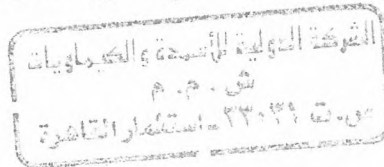 الشركة الدولية للأسمدة والكيماويات
ش . م . م
س . ت ٣٣٠٣١ ـ استثمار القاهرة